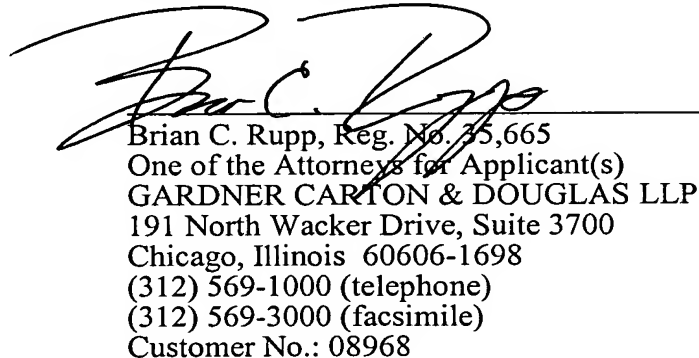 Brian C. Rupp
Brian C. Rupp, Reg. No. 35,665
One of the Attorneys for Applicant(s)
GARDNER CARTON & DOUGLAS LLP
191 North Wacker Drive, Suite 3700
Chicago, Illinois 60606-1698
(312) 569-1000 (telephone)
(312) 569-3000 (facsimile)
Customer No.: 08968